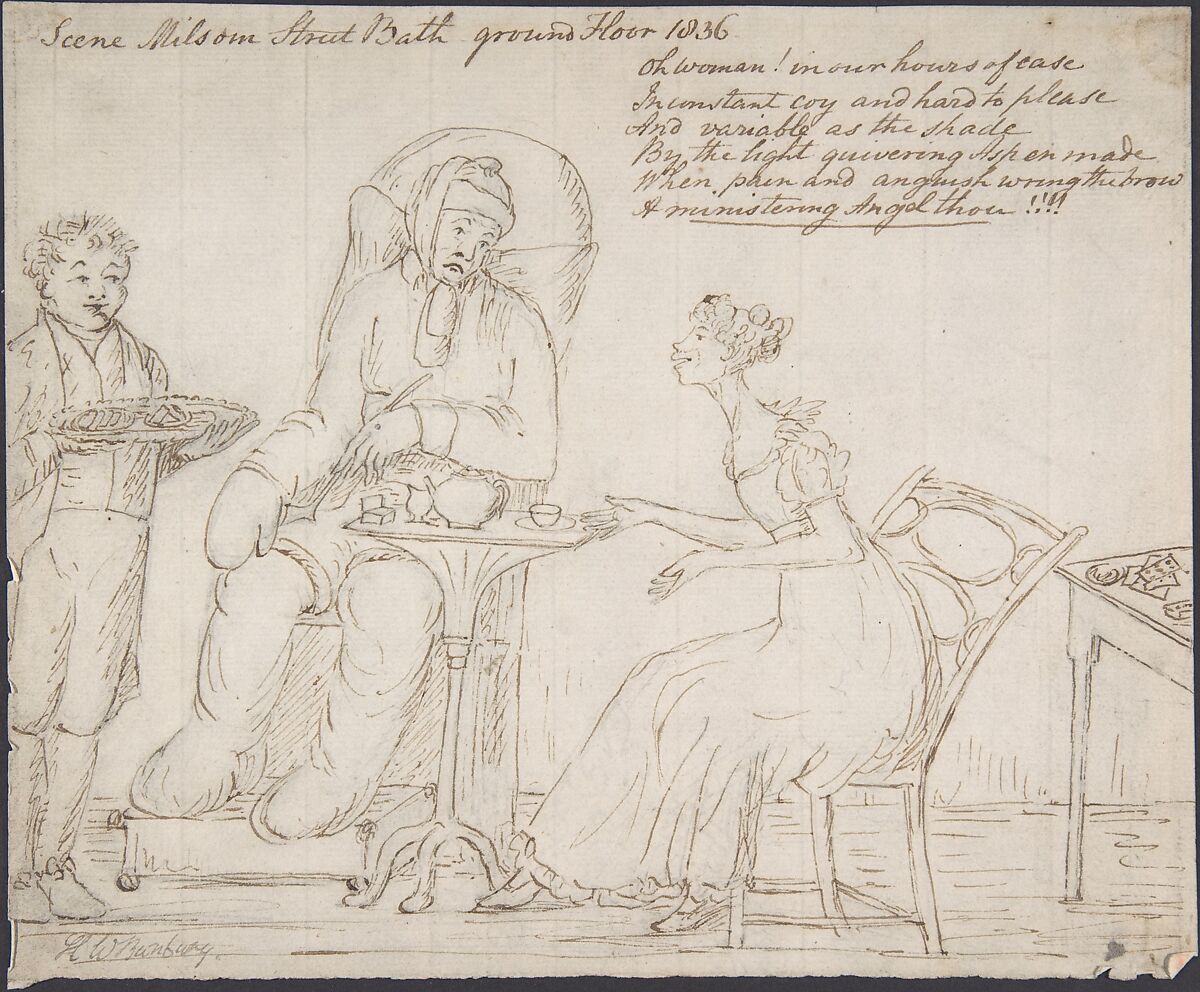 Scene Milsom Street Bath ground Floor 1836
Oh woman! in our hours of ease
Inconstant coy and hard to please
And variable as the shade
By the light quivering Aspen made
When pain and anguish wring the brow
A ministering Angel thou !!!!
H W Bunbury.